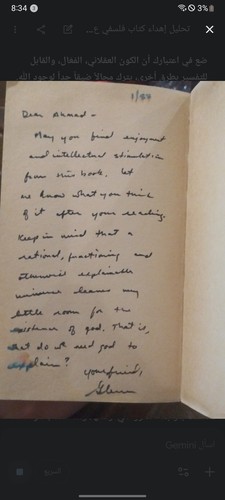 8:34
3%
تحليل إهداء كتاب فلسفي ع...
ضع في اعتبارك أن الكون العقلاني، الفعّال، والقابل
للتفسير بطرق أخرى، يترك مجالاً ضيقاً جداً لوجود الله.
1/84
Dear Ahmad -
May you find enjoyment
and intellectual stimulation
from this book. Let
me know what you think
of it after your reading.
Keep in mind that a
rational, functioning and
otherwise explainable
universe leaves very
little room for the
existence of god. That is,
what do we need god to
explain?
Your friend,
Glenn
اسأل Gemini
السريع